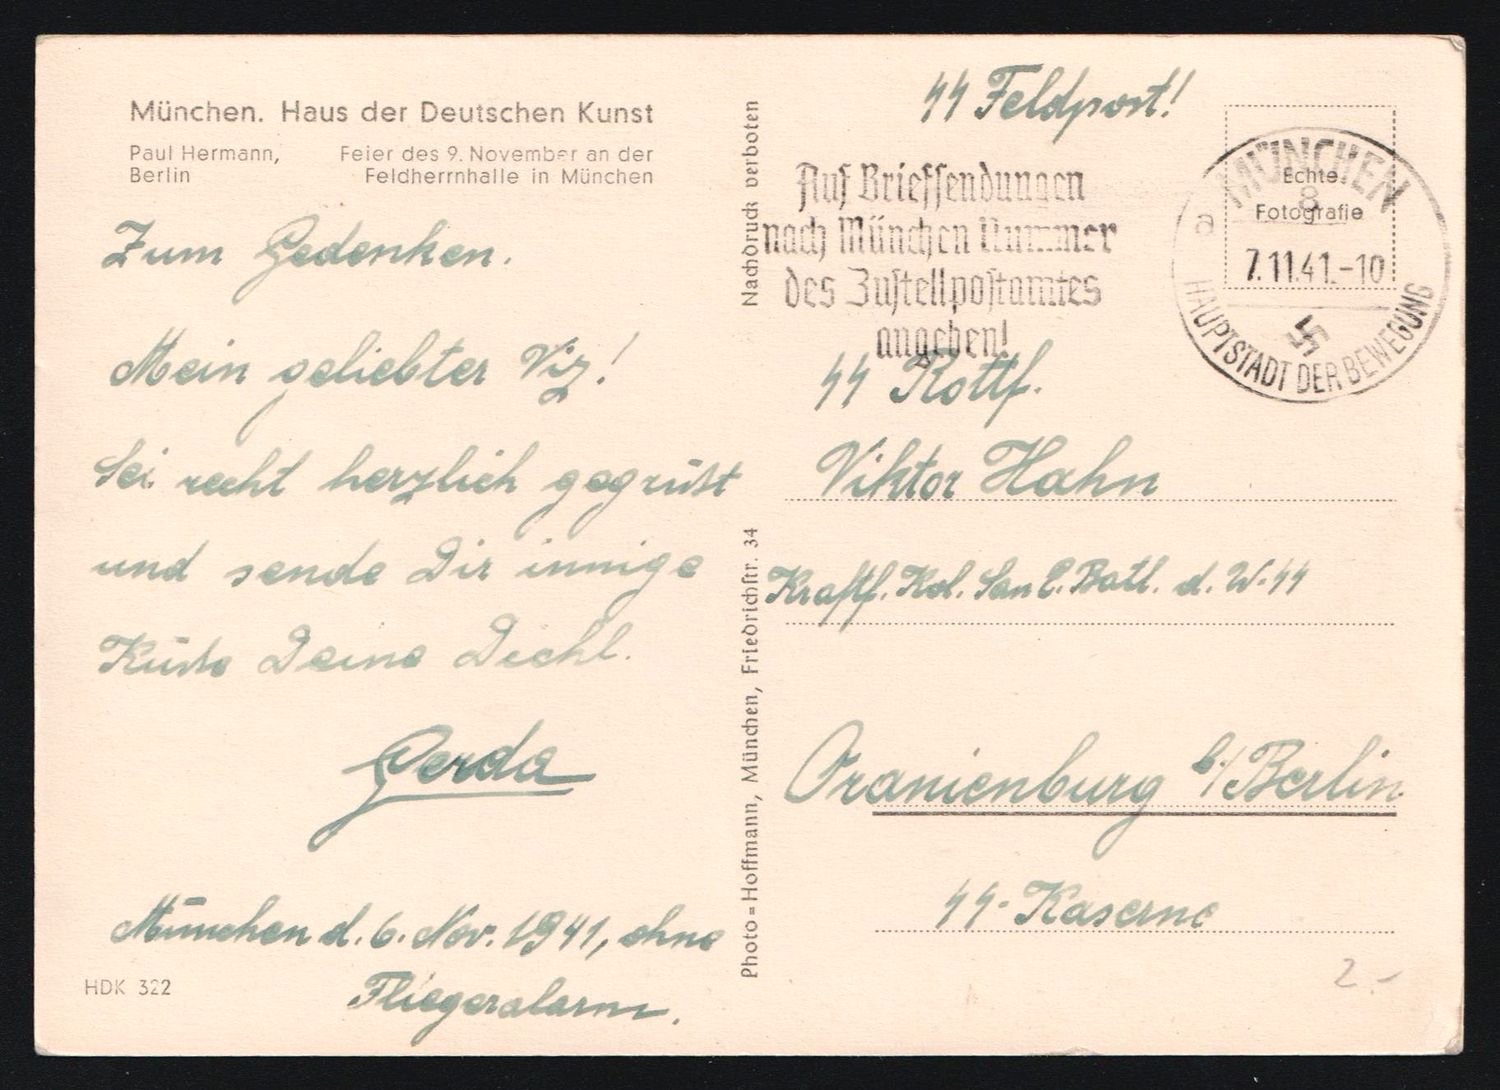 München. Haus der Deutschen Kunst
Paul Hermann, Feier des 9. November an der
Berlin Feldherrnhalle in München
Zum Gedenken.
Mein geliebter Viz!
Sei recht herzlich gegrüßt
und sende Dir innige
Küsse Deine Diehl.
Gerda
München d. 6. Nov. 1941, ohne
Fliegeralarm.
HDK 322
Nachdruck verboten
Photo=Hoffmann, München, Friedrichstr. 34
SS Feldpost!
Auf Briefsendungen
nach München Nummer
des Zustellpostamtes
angeben!
Echte
Fotografie
MÜNCHEN
8
a
7.11.41.-10
HAUPTSTADT DER BEWEGUNG
SS Rottf.
Viktor Hahn
Kraftf. Kol. San E. Batl. d. W-SS
Oranienburg b/Berlin
SS-Kaserne
2.-